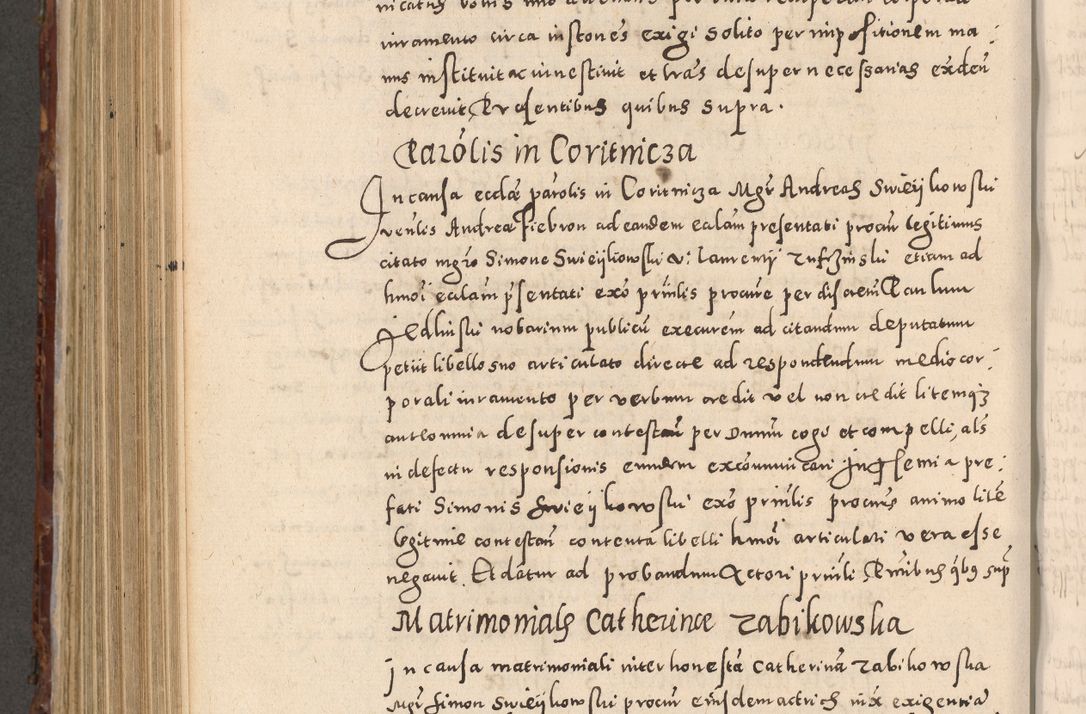 iuramento circa insto͞nes exigi solito per impositionem ma:
nus instituit ac investivit et lr͞as desuper necessarias exdeu͞
decrevit, Presentibus quibus supra.
Parolis in Coritnicza
In causa eccl͞æ parolis in Coritnicza Mgr͞ Andreas Swieijkowski
ven͞lis Andreæ Fiebron ad eandem ecl͞am presentati procu͞r legitimus
citato mgr͞o Simone Swieijkowski v: Laurentij etiam ad
hmo͞i ecl͞am p͞sentati exo͞ prin͞lis procu͞re per discretu͞ Paulum
Jedlinski notarium publicu͞ executore͞m ad citandum deputatum
petiit libello suo articulato directe ad respondendum medio cor:
porali iuramento per verbum credit vel non credit litemqȝ
ante omnia desuper contesta͞n per Dnu͞m cogi et compelli, al͞s
in defectu responsionis eundem exco͞municari In p͞sentia pre:
fati Simonis Swieijkowski exo͞ prin͞lis procu͞ris animo lite͞
legitime contesta͞n contenta libelli hmo͞i articulati vera esse
negavit. Et datur ad probandum Actori prin͞li Pn͞tibus qb͞s sup͞
Matrimonialis Catherinæ Rabikowska
In causa matrimoniali inter honesta͞ Catherina͞ Rabikowska
Mgr͞ Simon Swieijkowski procu͞r eiusdem actricis iux͞ exigentia͞